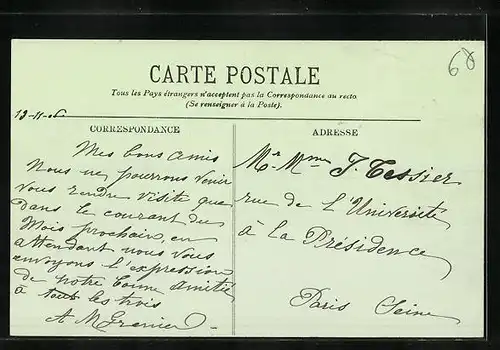 60
CARTE POSTALE
Tous les Pays étrangers n'acceptent pas la Correspondance au recto
(Se renseigner à la Poste).
13-11-06
CORRESPONDANCE
Mes bons amis
Nous ne pourrons venir
vous rendre visite que
dans le courant du
Mois prochain, en
attendant nous vous
envoyons l'expression
de notre bonne amitié
à tous les trois
A M Grenier
ADRESSE
Mr Mme J. Tessier
rue de l'Université
à la Présidence
Paris Seine